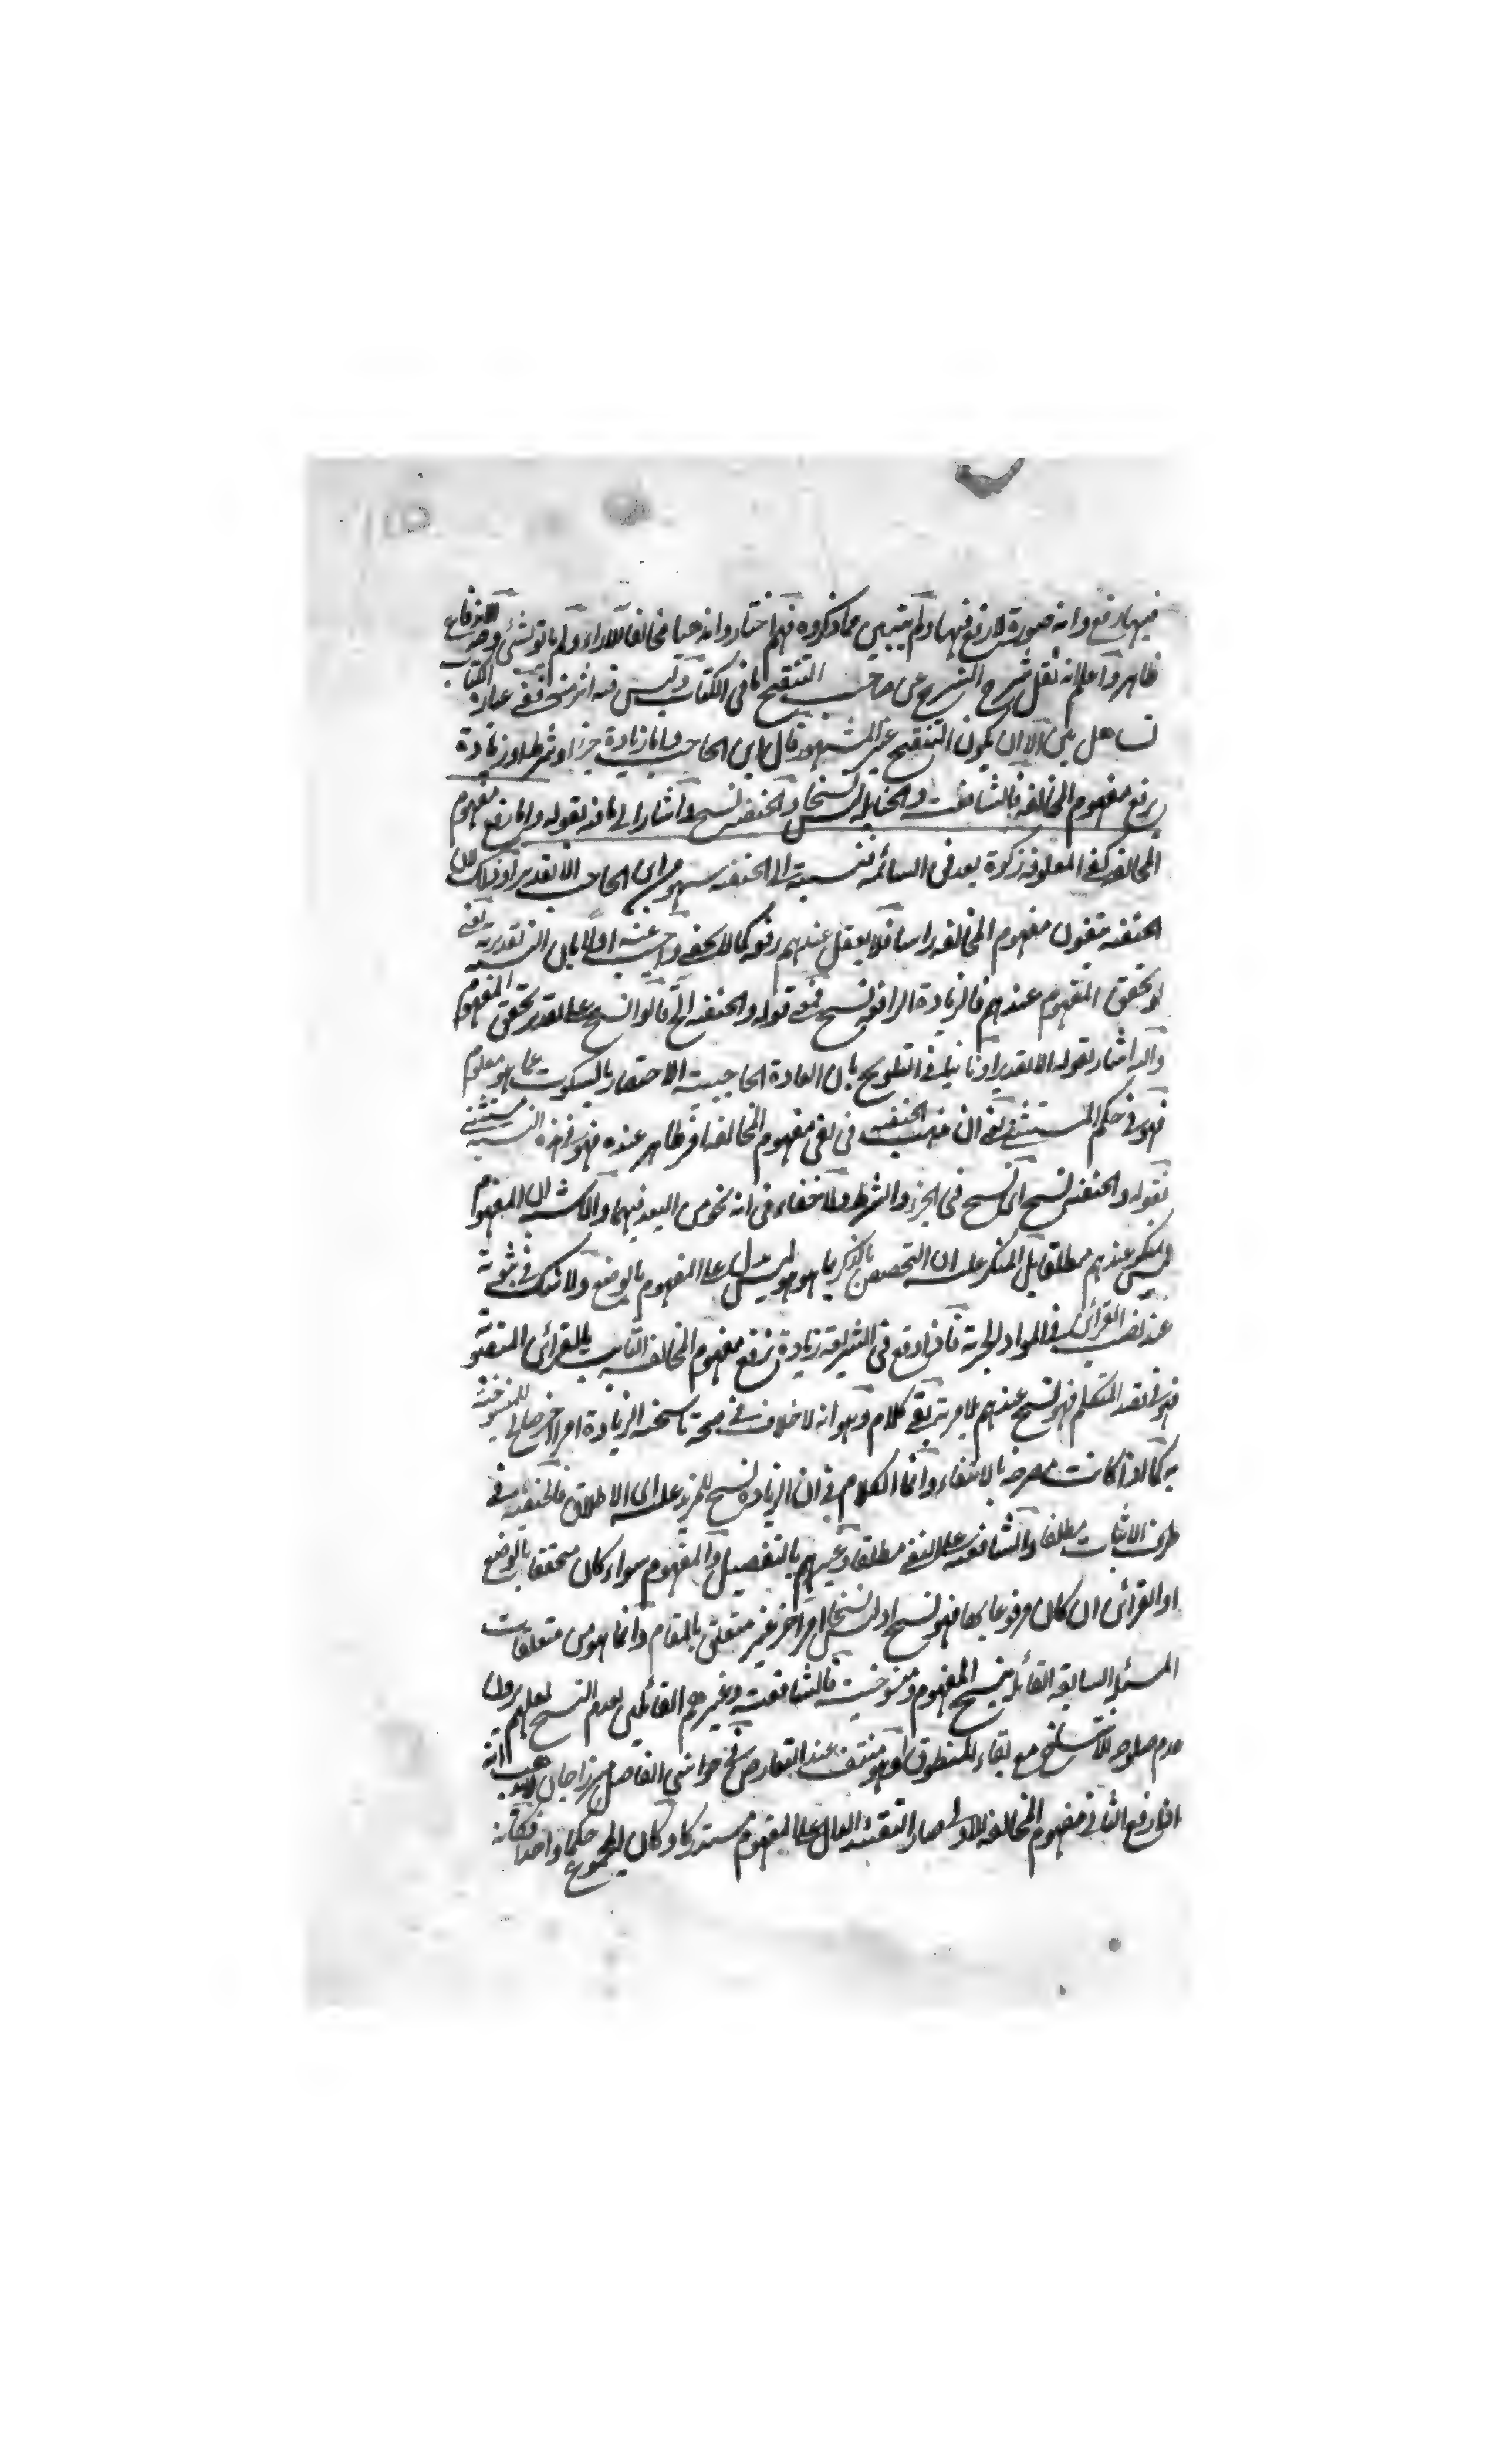 فيها رفع وانه صورة لا رفع فيها ولم يتبين مما ذكروه فهم اختاروا مذهبا مخالفا للآراء ولم يأتوا بشئ وجه الاندفاع
ظاهر واعلم انه نقل شرح الشرح عن صاحب التنقيح ما في الكتاب وليس فيه اثر منه ففي عبارة الكتاب
تساهل بين الا ان يكون التنقيح غير المشهور قال ابن الحاجب واما زيادة جزء او شرط او زيادة
يرفع مفهوم المخالفة فالشافعية والحنابلة ليس نسخا والحنفية نسخ واشار الى ما فيه بقوله واما رفع مفهوم
المخالفة كفي المعلوفة زكوة بعد في السائمة فنسبته الى الحنفية سهو من ابن الحاجب الا تقديرا وذلك لان
الحنفية ينفون مفهوم المخالفة راسا فلا يعقل عندهم رفعه كما لا يخفى واجيب عنه اولا بان النسبة تقديرية يعني
لو تحقق المفهوم عندهم فالزيادة الرافعة نسخ فمعنى قوله والحنفية الخ قالوا النسخ على تقدير تحقق المفهوم
واليه اشار بقوله الا تقديرا وثانيا في التلويح بان العادة الحاجبية الاختصار بالسكوت عما هو معلوم
فهو في حكم المستثنى يعني ان مذهب الحنفية في نفي مفهوم المخالفة امر ظاهر عنده فهو في هذه النسبة مستثنى
فقوله والحنفية نسخ اي نسخ في الجزء والشرط ولا خفاء في انه نحو من البعد فيهما والاشبه ان المفهوم
ليس بمنكر عندهم مطلقا بل المنكر عليه ان التخصيص بالذكر بما هو هو ليس يدل على المفهوم بالوضع ولا شك في ثبوته
عند نصب القرائن في المواد الجزئية فاذا وقع في الشريعة زيادة ترفع مفهوم المخالفة الثابت بالقرائن المنصوبة
فهو في قصد المتكلم فهو نسخ عندهم بلا مرية بقي كلام وهو انه لا خلاف في صحة ناسخية الزيادة امرا اخر صالح للمنسوخية
به كما اذا كانت معرضة بالانتفاء وانما الكلام في ان الزيادة نسخ للمزيد عليه الى الاطلاق فالحنفية في
طرف الاثبات مطلقا والشافعية على النفي مطلقا وغيرهم بالتفصيل والمفهوم سواء كان متحققا بالوضع
او القرائن ان كان مرفوعا بها فهو نسخ او ليس نسخا امر اخر غير متعلق بالمقام وانما هو من متعلقات
المسئلة السابقة القائلة بنسخ المفهوم ومنسوخيته فالشافعية وغيرهم القائلين بعدم النسخ لعلهم يرون
عدم صلوحه للانتساخ مع بقاء المنطوق وهو منتف عند التعارض في حواشي الفاضل ميرزا جان لا يذهب انه
اذا رفع الثاني مفهوم المخالفة للاول صار التقييد الدال على المفهوم مستدركا وكان المجموع حكما واحدا فكانه